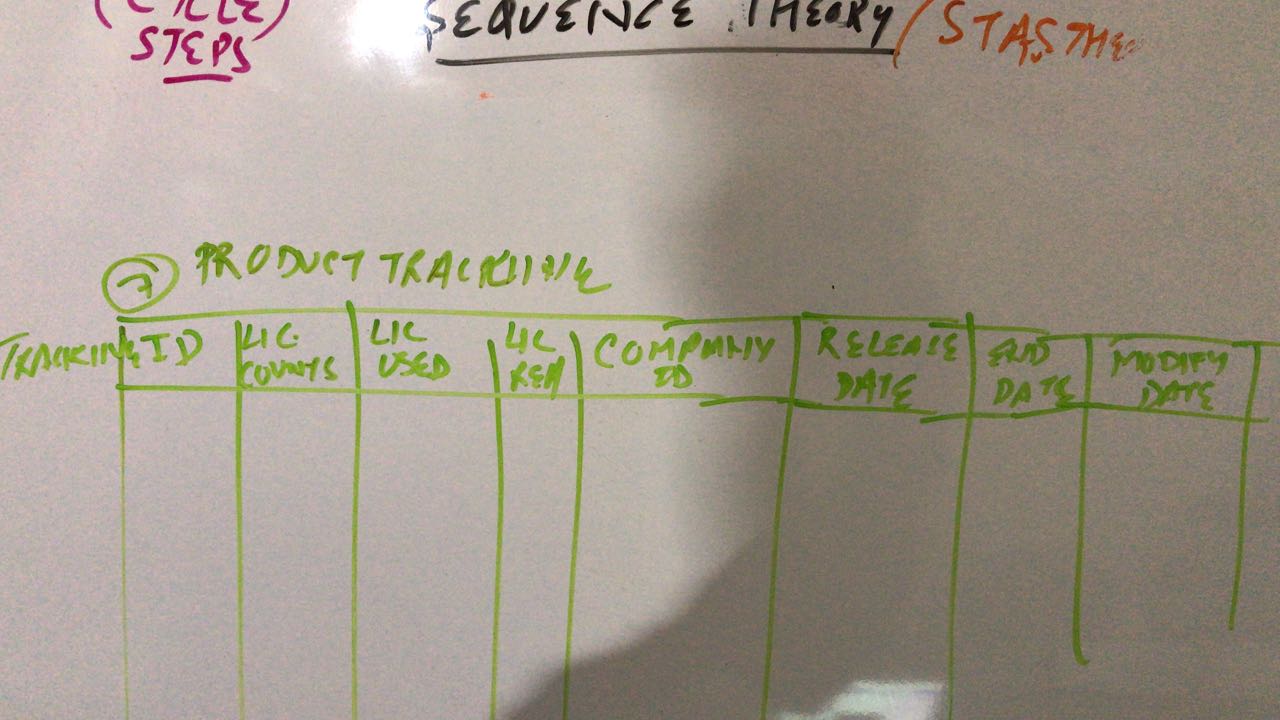 (CYCLE)
STEPS
SEQUENCE THEORY (STASTHE
7 PRODUCT TRACKING
TRACKING ID
LIC COUNTS
LIC USED
LIC REM
COMPANY ID
RELEASE DATE
END DATE
MODIFY DATE